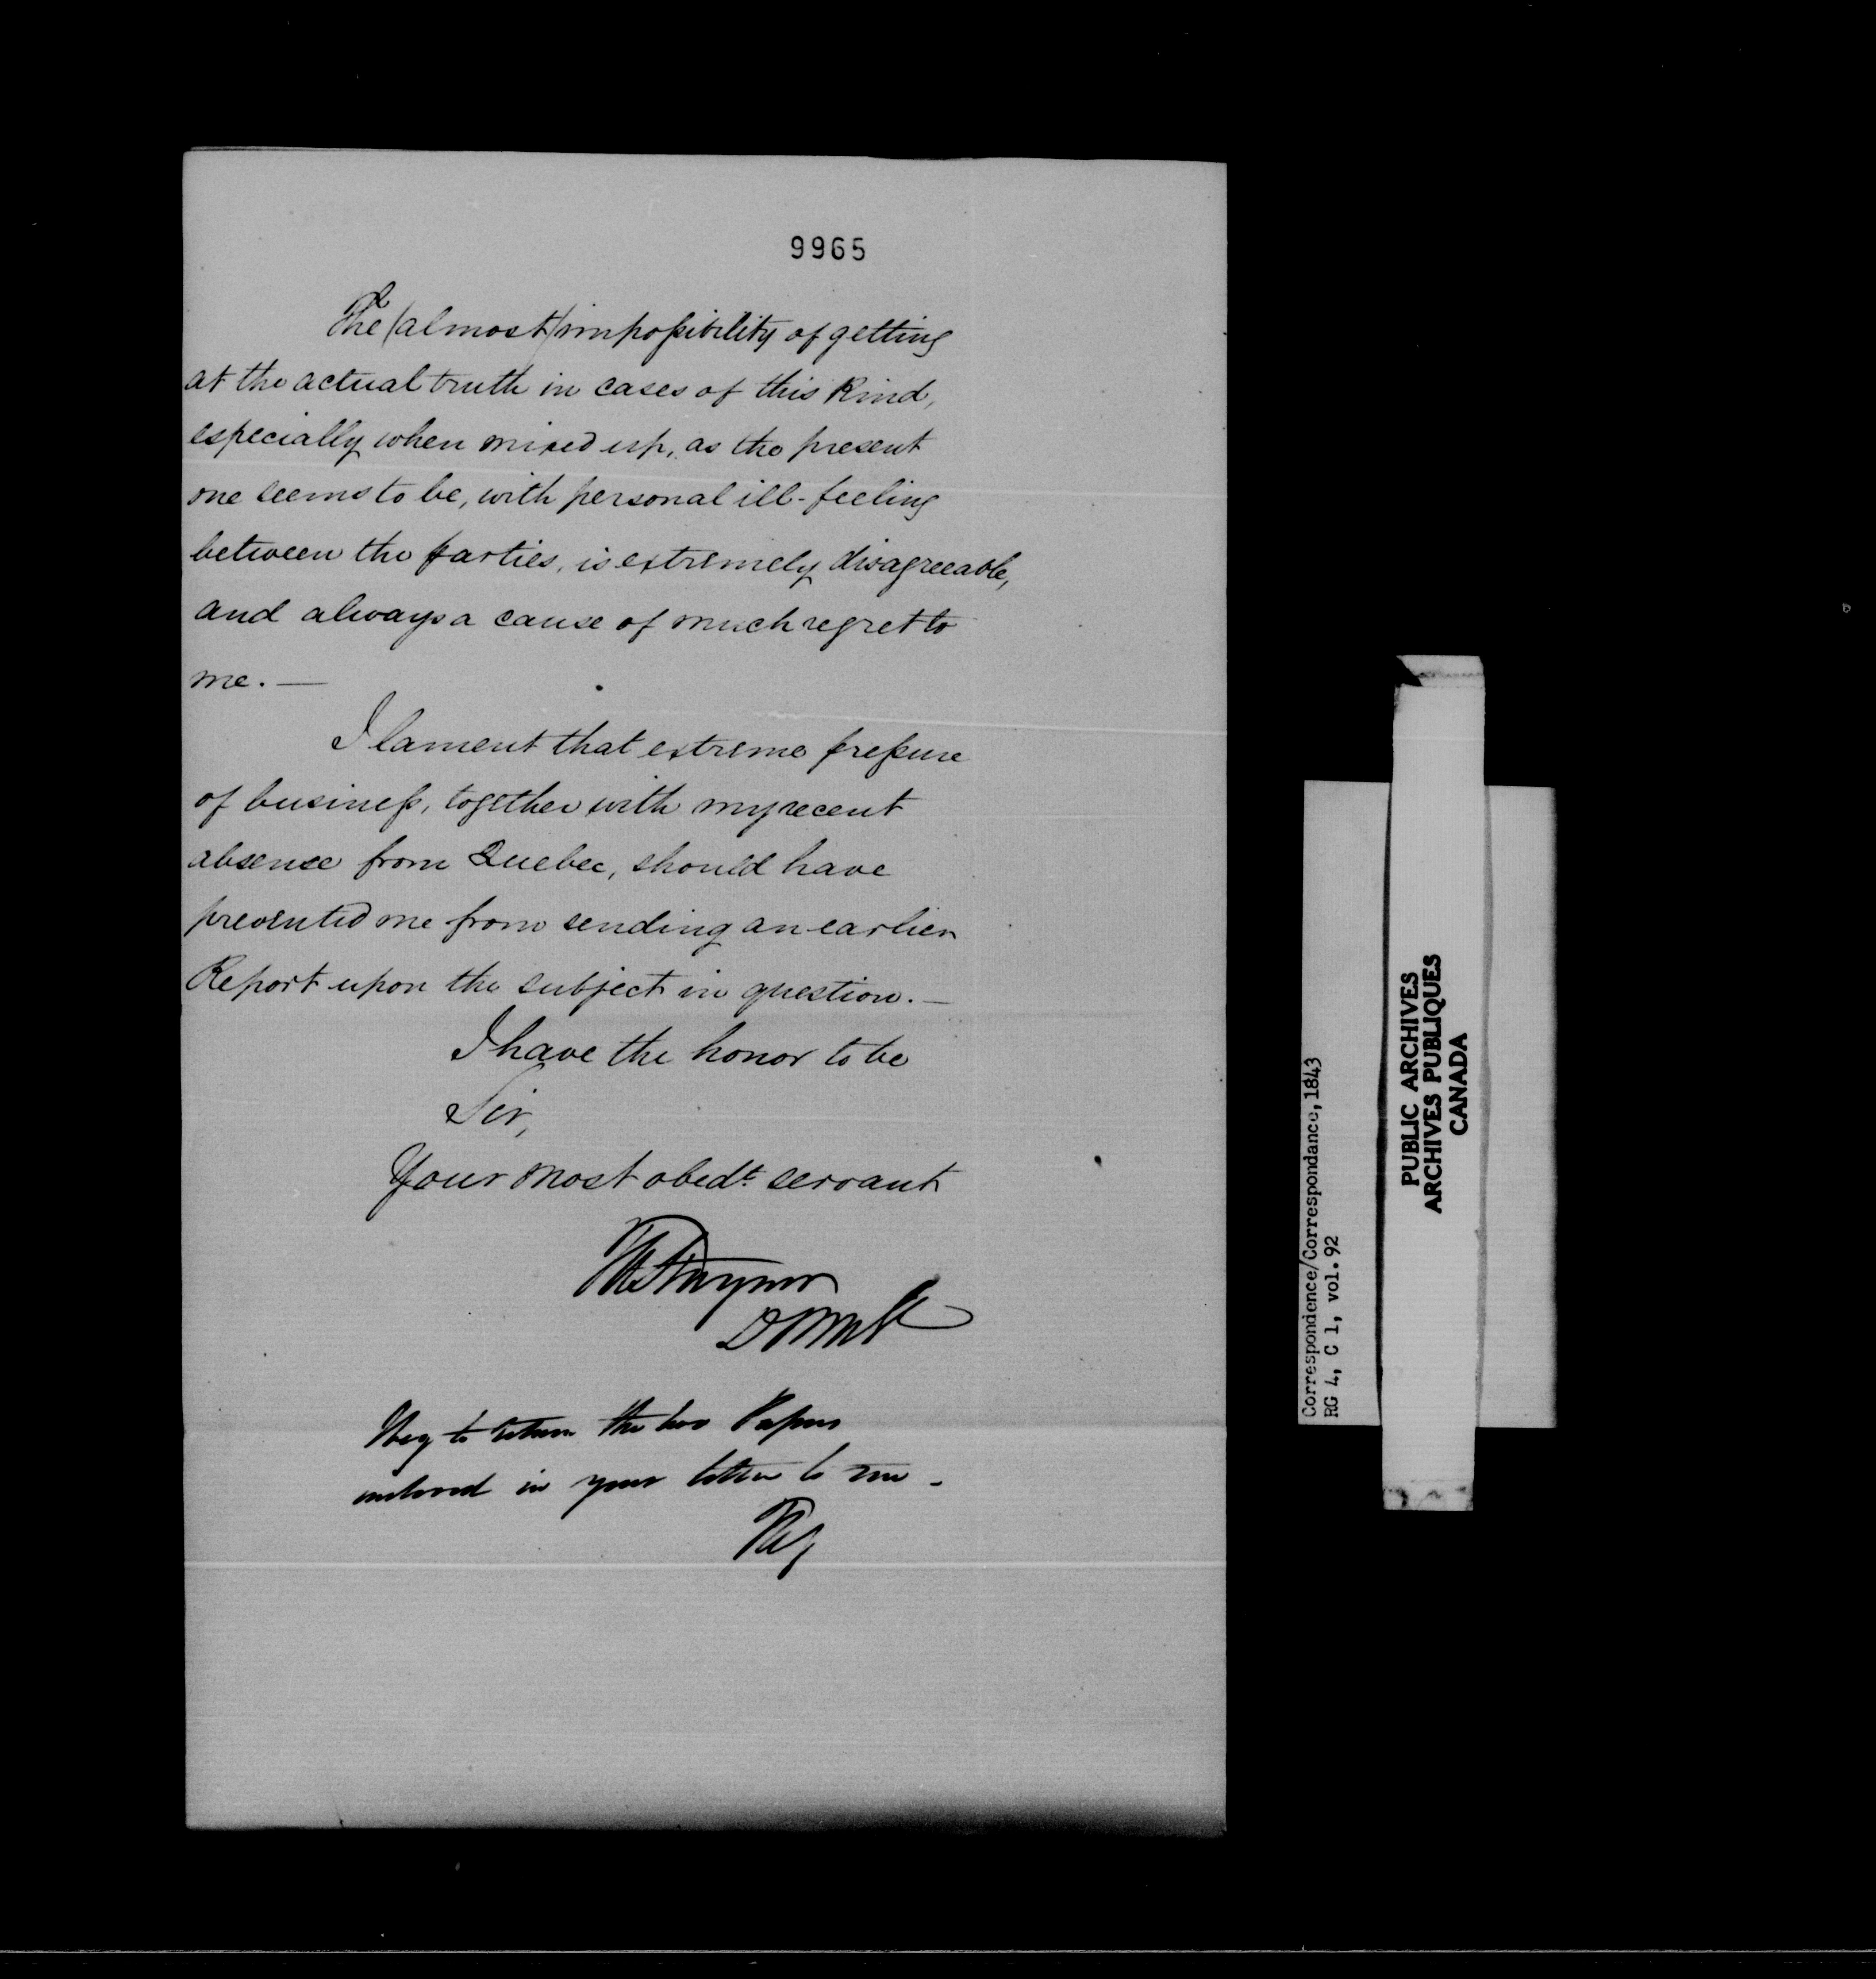 9965
The (almost) impossibility of getting
at the actual truth in cases of this kind,
especially when mixed up, as the present
one seems to be, with personal ill-feeling
between the parties, is extremely disagreeable,
and always a cause of much regret to
me. —
I lament that extreme pressure
of business, together with my recent
absence from Quebec, should have
prevented me from sending an earlier
Report upon the subject in question. —
I have the honor to be
Sir,
Your most obedt. servant
TAStayner
DPMG
I beg to return the two Papers
inclosed in your letter to me -
TAS
Correspondence/Correspondance, 1843
RG 4, C 1, vol. 92
PUBLIC ARCHIVES
ARCHIVES PUBLIQUES
CANADA